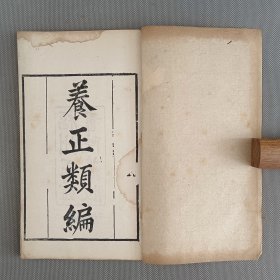 養正類編